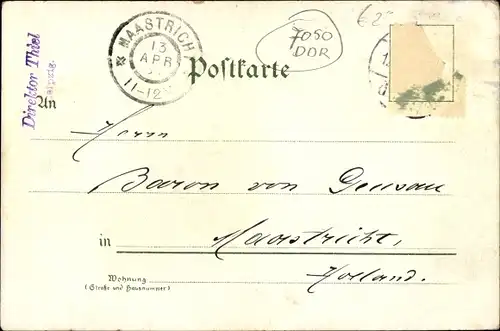 Direktor Thiel
Leipzig.
MAASTRICH
13
APR
11-12
7050
DDR
Postkarte
An
Herrn
Baron von
in Maastricht,
Holland.
Wohnung
(Straße und Hausnummer)